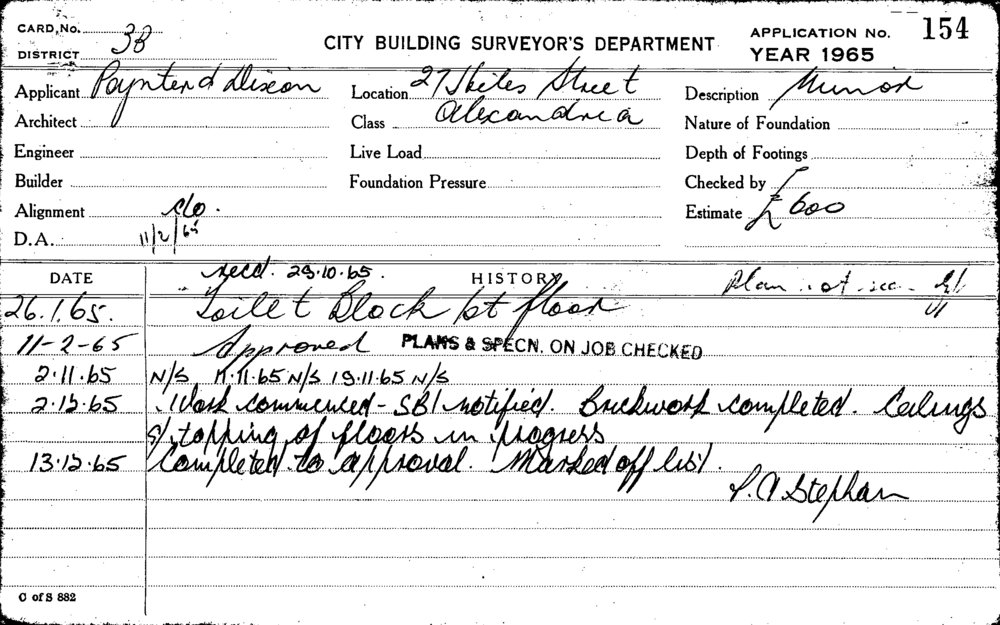 CARD, No.
DISTRICT 3B
CITY BUILDING SURVEYOR'S DEPARTMENT
APPLICATION No. 154
YEAR 1965
Applicant Paynter & Dixon
Location 27 Stiles Street
Description Minor
Architect
Class Alexandria
Nature of Foundation
Engineer
Live Load
Depth of Footings
Builder
Foundation Pressure
Checked by
Alignment
Estimate £600
D.A. 11/2/65
DATE
HISTORY
recd. 29.10.65.
Plan not rec.
26.1.65. Toilet Block 1st floor
11-2-65 Approved PLANS & SPECN. ON JOB CHECKED
2.11.65 N/S 11.11.65 N/S 19.11.65 N/S
2.12.65 Work commenced - SBI notified. Brickwork completed. Ceilings
& topping of floors in progress
13.12.65 Completed to approval. Marked off list.
Stephan
C of S 882